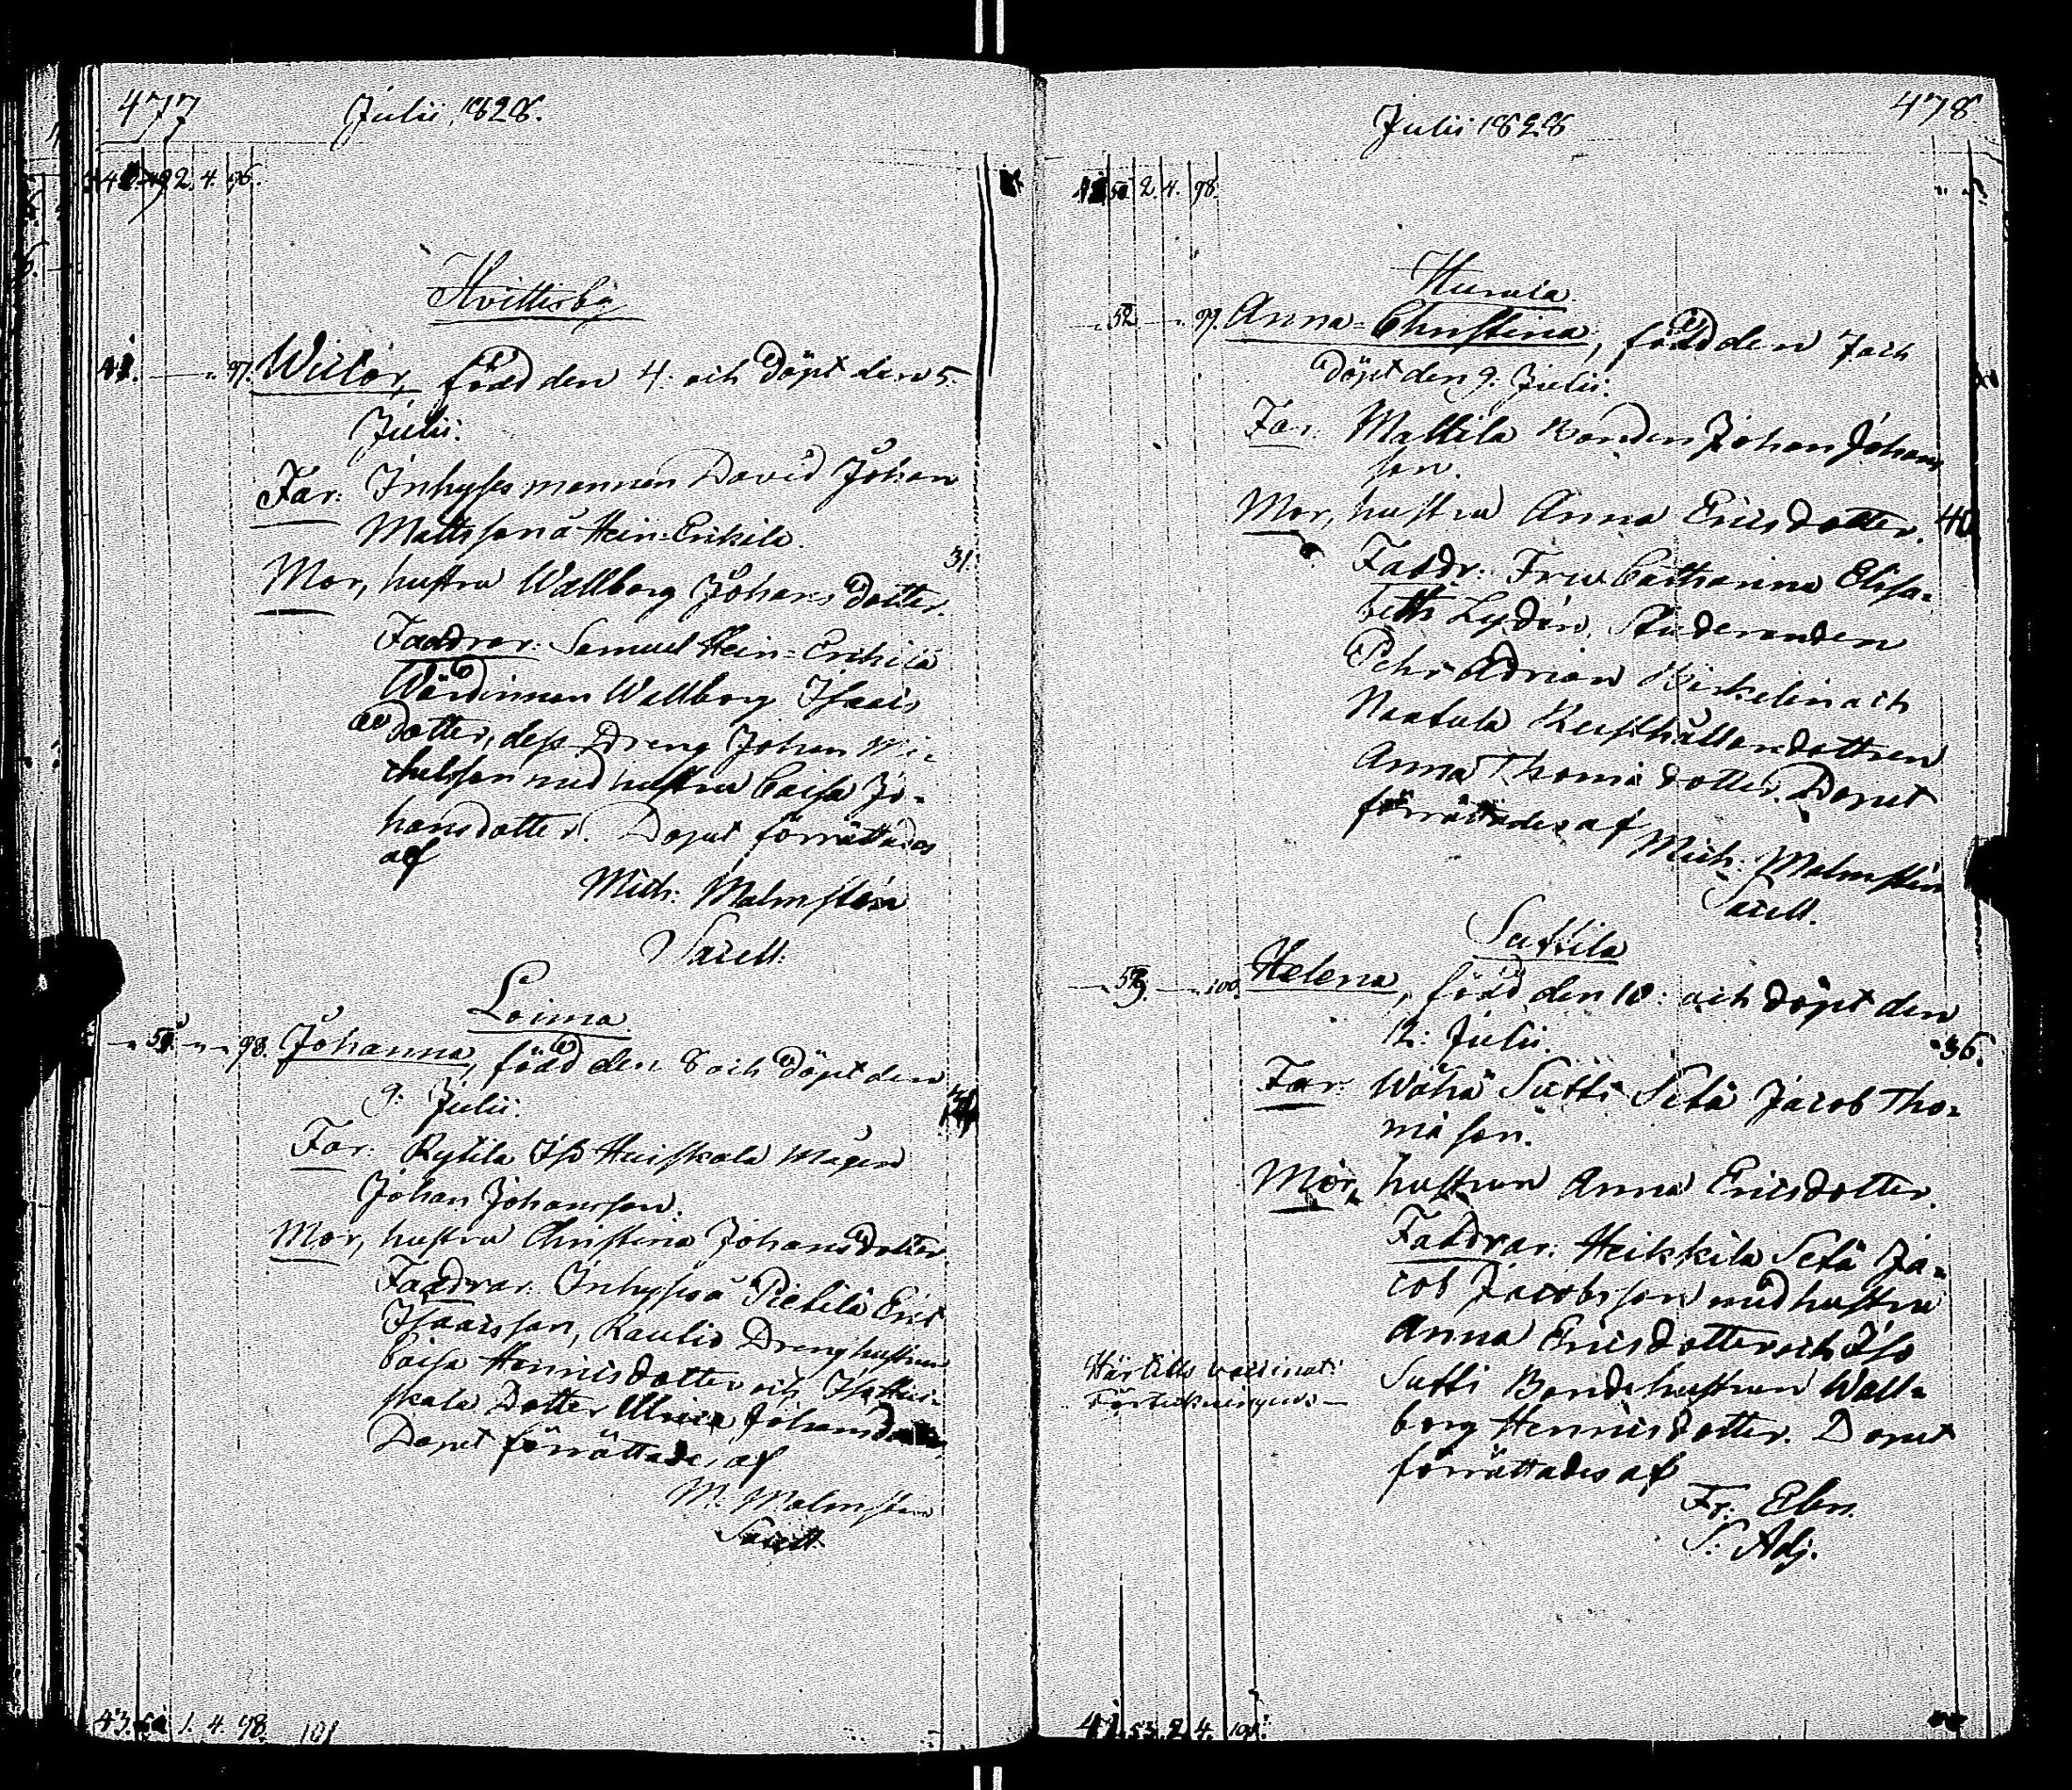 477
Julii, 1828.
2. 4. 96.
Hvittisby
97. Victor, född den 4. och döpt den 5.
Julii.
Far: Inhyses mannen David Johan
Mattsson å Hein-Erikila.
31.
Mor, hustru Wallborg Johansdotter.
Faddrar: Samuel Hein-Erikila
Wärdinnan Wallborg Isaacs
dotter, dess Dreng Johan Mi-
chelsson med hustru Caisa Jo-
hansdotter. Dopet förrättades
af
Mich: Malmstén
Sacell:
Loima
98. Johanna, född den 8 och döpt den
9. Julii.
Far: Rytila Iso Heiskala Mågen
Johan Johansson.
Mor, hustru Christina Johansdotter
Faddrar: Inhyses å Pietilä Eric
Isaacsson, Raulio Dreng hustrun
Caisa Henricsdotter och Iso Hei-
skala Dotter Ulrica Johansdotter,
Dopet förrättades af
M. Malmstén
Sacell.
43. 1. 4. 98. 101
478
Julii 1828
2. 4. 98.
Humia
52 99. Anna-Christina, född den 7 och
döpt den 9. Julii.
Far: Mattila Bonden Johan Johans
son.
Mor, hustru Anna Ericsdotter. 40
Faddr: Fru Catharina Elisa-
beth Lydén, Studeranden
Pehr Adrian Kiskelin och
Naatula Rusthållaredottren
Anna Thomædotter. Dopet
förrättades af Mich: Malmstén
Sacell.
Suttila
53. 100. Helena, född den 10: och döpt den
12: Julii.
36.
Far: Wähä Sutti Setä Jacob Tho-
mæson.
Mor, hustrun Anna Ericsdotter.
Faddrar: Heikkila Setä Ja-
cob Jacobsson med hustru
Anna Ericsdotter och Iso
Sutti Bonde hustrun Wall-
borg Henricsdotter. Dopet
förrättades af
Fr: Elvn.
S. Adj.
Här tills vaccinat:
Förteckningen.
53. 2. 4. 101.